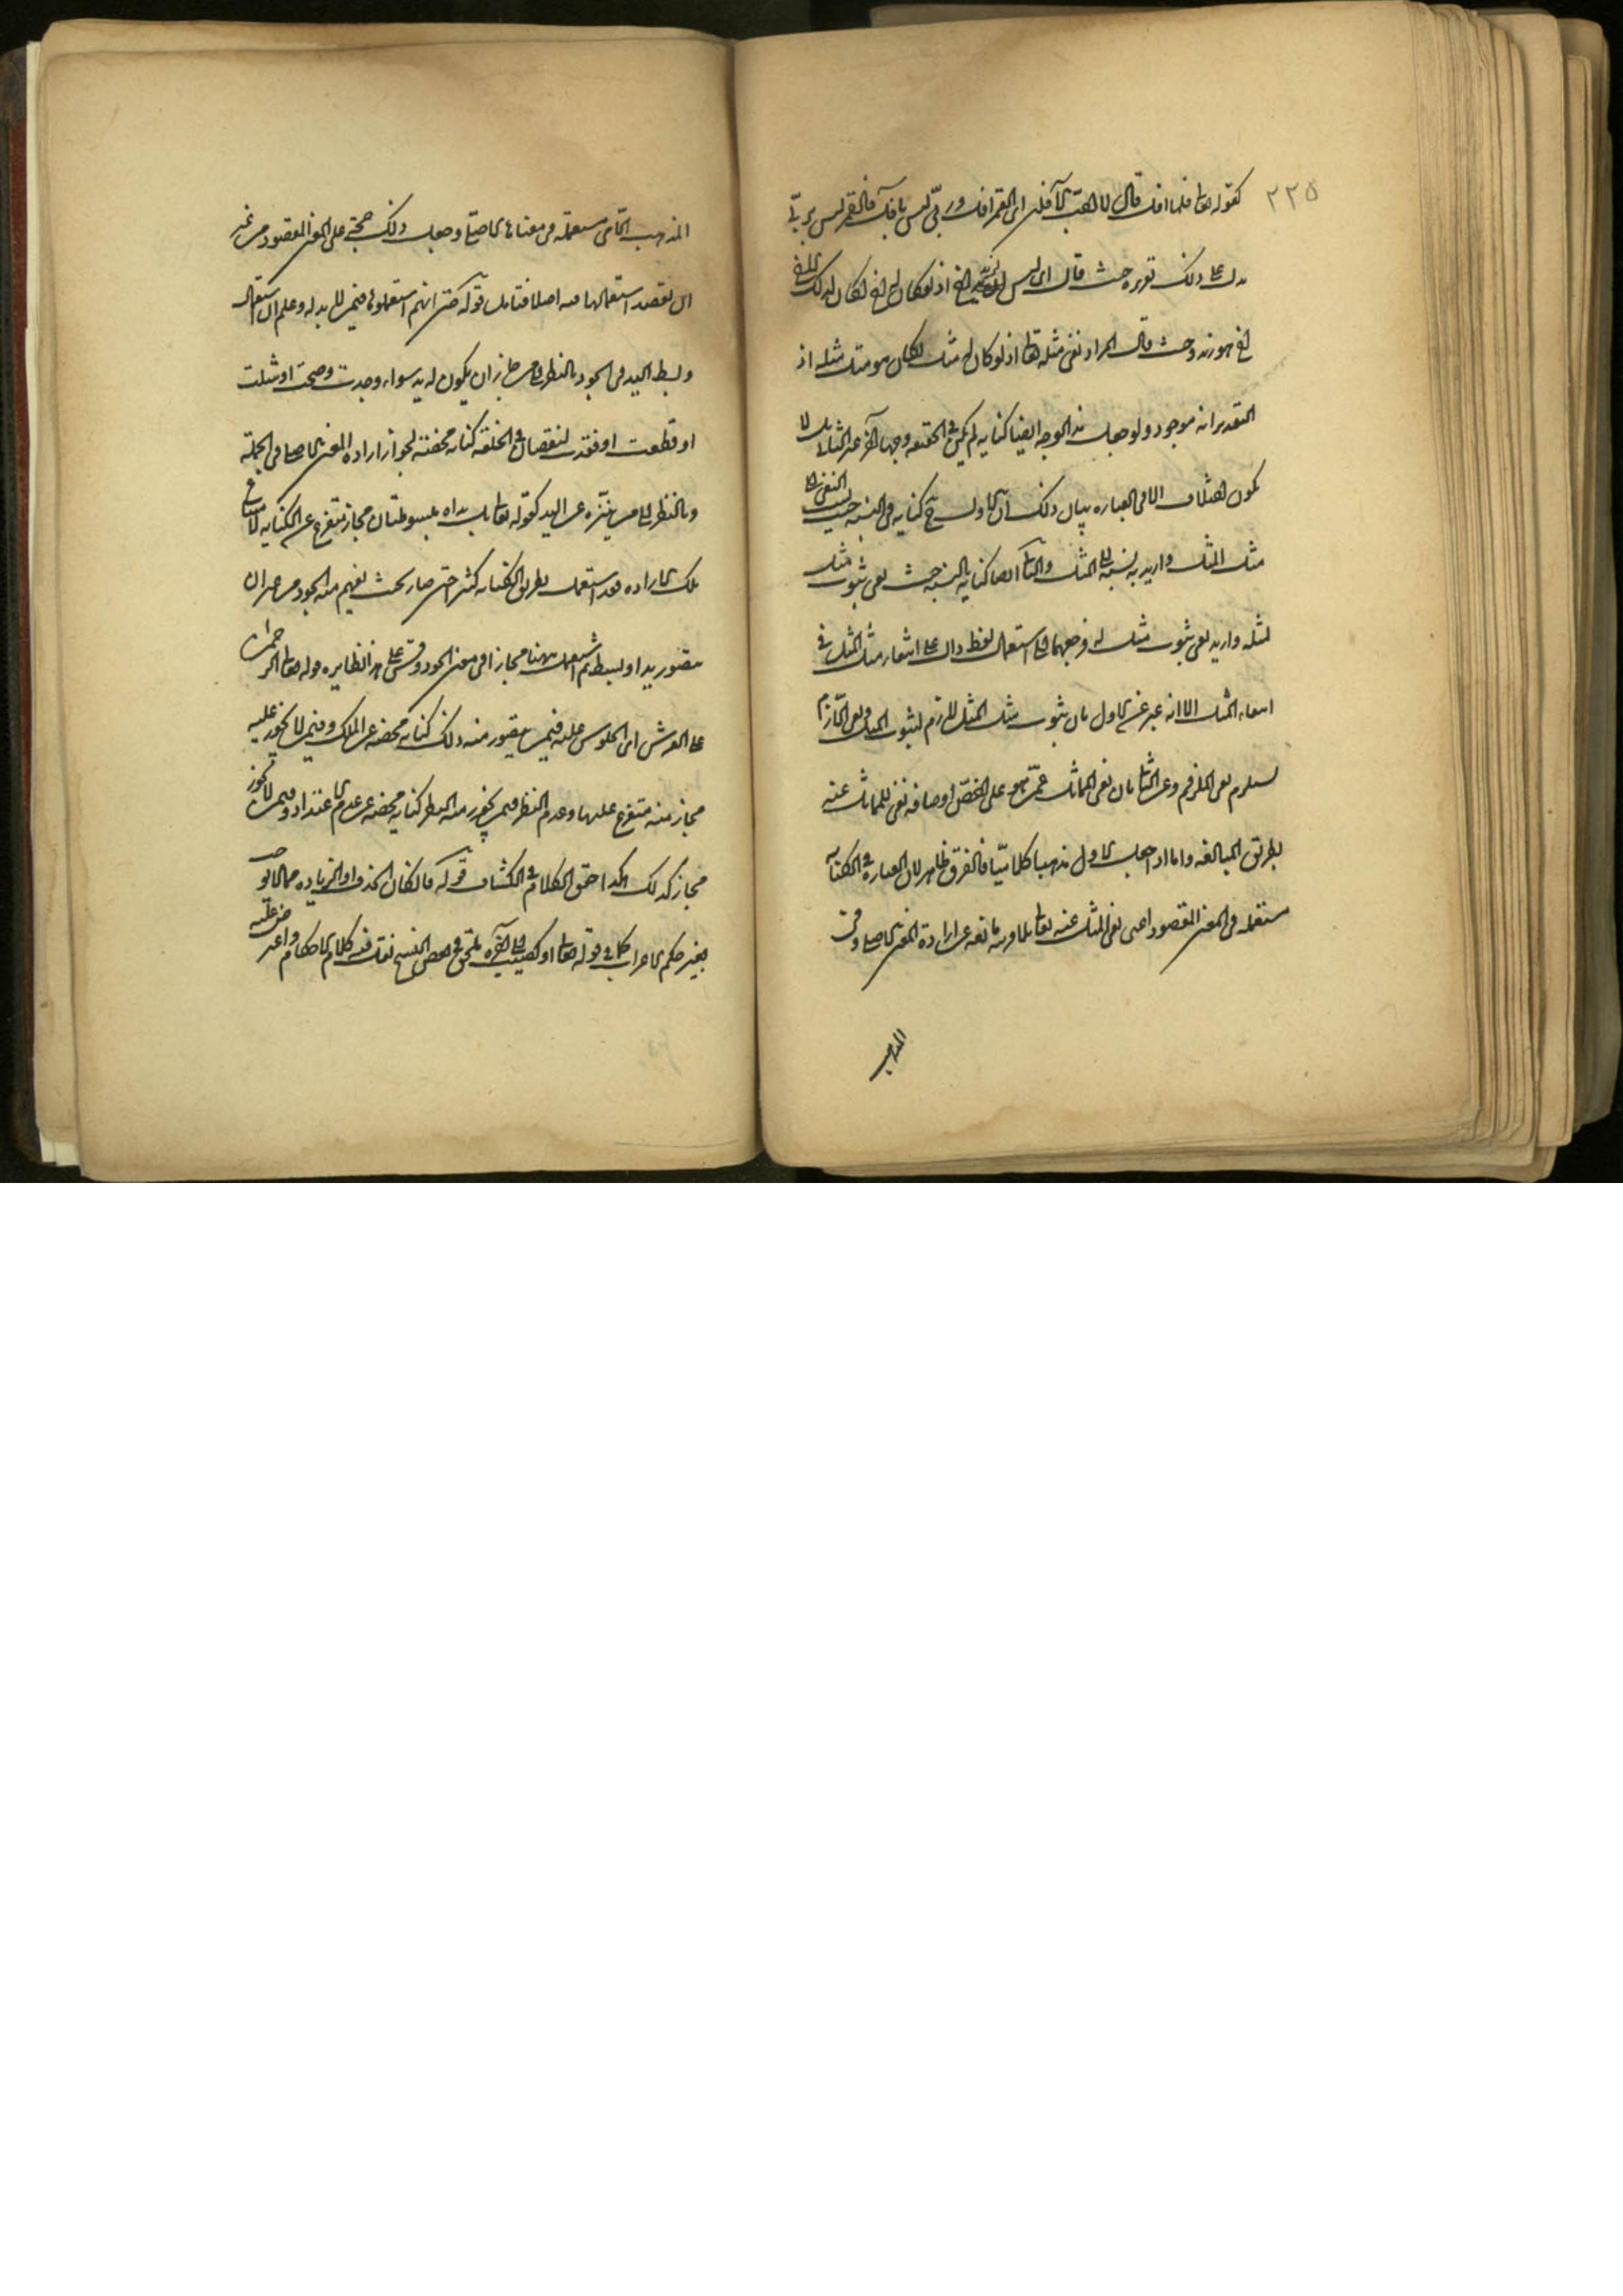 ٢٣٥
كقوله تعالى فلما افل قال لا احب الآفلين اى القمر افل وربى ليس بافل فالقمر ليس بربى
يدل على ذلك تقريره حيث قال اى ليس لزيد اخ اذ لو كان له اخ لكان لذلك الاخ
اخ هو زيد وحيث قال المراد نفى مثله تعالى اذ لو كان له مثل لكان هو مثل مثله اذ
التقدير انه موجود ولو جعل هذا الوجه ايضا كنايه لم يكن فى الحقيقه وجها آخر غير الثانى بل لا
يكون اختلاف الا فى العباره بيان ذلك ان الاول ح كنايه فى النسبه حيث نسب النفى الى
مثل المثل واريد به نسبته الى المثل والثانى ايضا كنايه فى النسبه حيث نفى ثبوت مثل
لمثله واريد نفى ثبوت مثل له فرجعهما الى استعمال لفظ دال على انتفاء مثل المثل فى
انتفاء المثل الا انه عبر عن الاول بان ثبوت مثل المثل لازم لثبوت المثل ونفى اللازم
يستلزم نفى الملزوم وعن الثانى بان نفى المماثل عمن هو على اخص اوصافه نفى للمماثل عنه
بطريق المبالغه واما اذا جعل الاول مذهبا كلاميا فالفرق ظاهر لان العباره فى الكنايه
مستعمله فى المعنى المقصود اعنى نفى المثل عنه تعالى بلا قرينه مانعه عن اراده المعنى الاصلى وفى
المذهب
المذهب الكلامى مستعمله فى معناها الاصلى وجعل ذلك حجة على المعنى المقصود من غير
ان يقصد استعمالها فيه اصلا فتامل قوله حتى انهم استعملوها فيمن لا يد له وعلم ان استعمال
وبسط اليد فى الجود بالنظر الى من جاز ان يكون له يد سواء وجدت وصحت او شلت
او قطعت او فقدت لنقصان فى الخلقه كنايه محضة لجواز اراده المعنى الاصلى فى الجملة
وبالنظر الى من ينزه عن اليد كقوله تعالى بل يداه مبسوطتان مجاز متفرع عن الكنايه لامتناع
تلك الاراده فقد استعمل بطريق الكنايه كثيرا حتى صار بحيث يفهم منه الجود من غير ان
يتصور يد او بسط ثم استعمل ههنا مجازا فى معنى الجود وقس على هذا نظايره قوله تعالى الرحمن
على العرش اى الجلوس عليه فيمن يتصور منه ذلك كنايه محضه عن الملك وفيمن لا يجوز عليه
مجاز منه متفرع عليها وعدم النظر فيمن يجوز منه النظر كنايه محضه عن عدم الاعتداد وفيمن لا يجوز
مجاز كذلك هكذا حقق الكلام فى الكشاف قوله فان كان الحذف او الزياده مما لا يوجب
تغير حكم الاعراب كما فى قوله تعالى او كصيب الى آخره يلحق فى بعض النسخ نقل فيه كلام الاحكام واعترض عليه